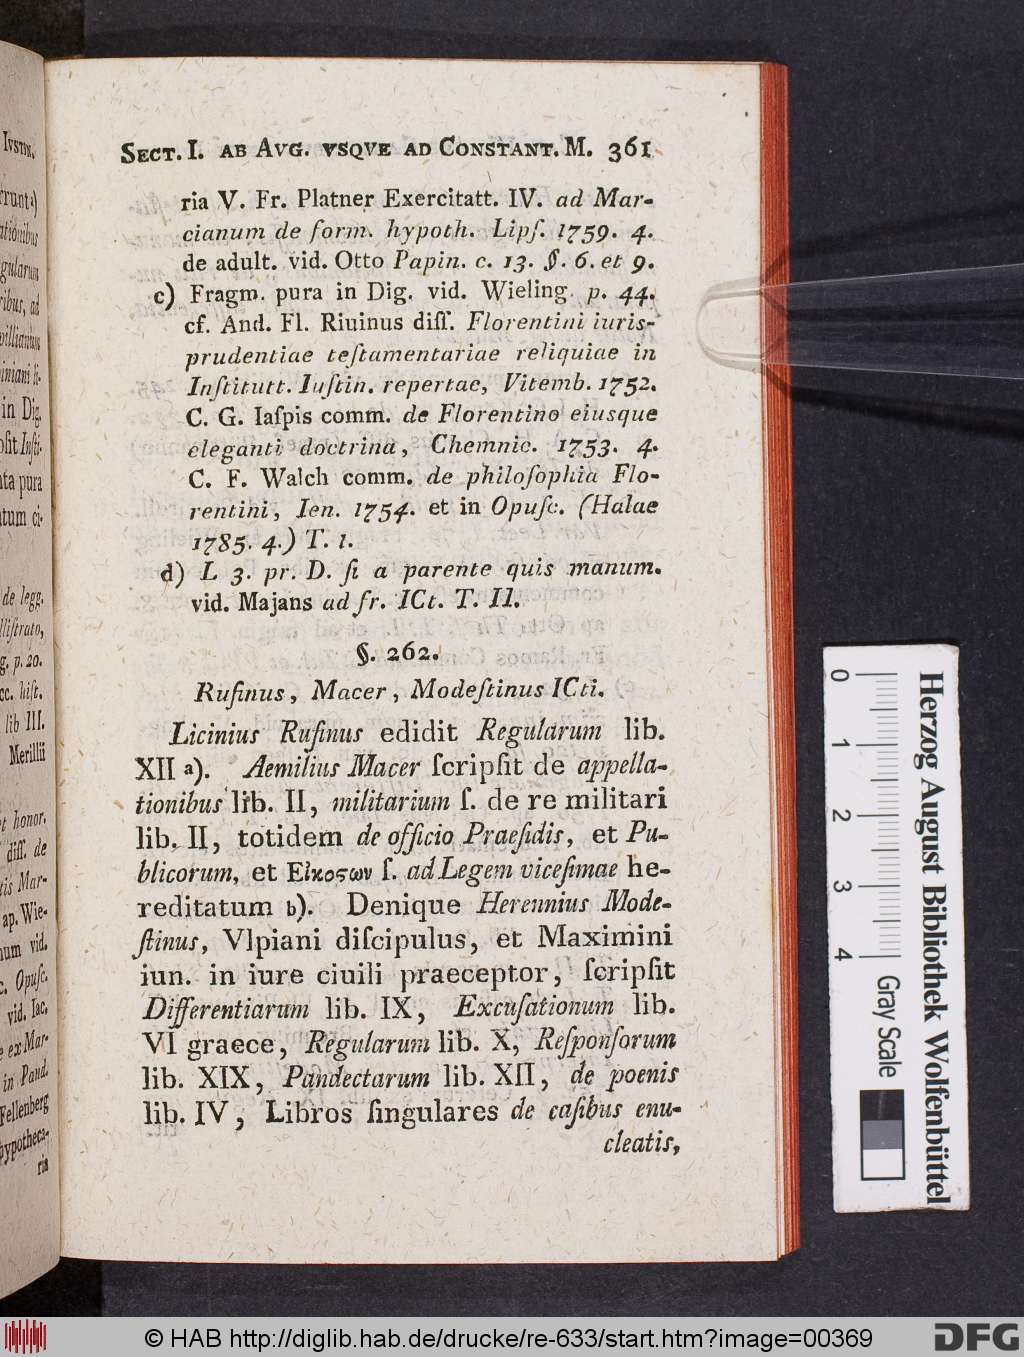 Sect. I. ab Avg. vsqve ad Constant. M. 361
ria V. Fr. Platner Exercitatt. IV. ad Mar-
cianum de form. hypoth. Lipſ. 1759. 4.
de adult. vid. Otto Papin. c. 13. §. 6. et 9.
c) Fragm. pura in Dig. vid. Wieling. p. 44.
cf. And. Fl. Riuinus diſſ. Florentini iuris-
prudentiae teſtamentariae reliquiae in
Inſtitutt. Iuſtin. repertae, Vitemb. 1752.
C. G. Iaſpis comm. de Florentino eiusque
eleganti doctrina, Chemnic. 1753. 4.
C. F. Walch comm. de philoſophia Flo-
rentini, Ien. 1754. et in Opuſc. (Halae
1785. 4.) T. 1.
d) L 3. pr. D. ſi a parente quis manum.
vid. Majans ad fr. ICt. T. II.
§. 262.
Rufinus, Macer, Modeſtinus ICti.
Licinius Rufinus edidit Regularum lib.
XII a). Aemilius Macer ſcripſit de appella-
tionibus lib. II, militarium ſ. de re militari
lib. II, totidem de officio Praeſidis, et Pu-
blicorum, et Εἰκοϛων ſ. ad Legem viceſimae he-
reditatum b). Denique Herennius Mode-
ſtinus, Vlpiani diſcipulus, et Maximini
iun. in iure ciuili praeceptor, ſcripſit
Differentiarum lib. IX, Excuſationum lib.
VI graece, Regularum lib. X, Reſponſorum
lib. XIX, Pandectarum lib. XII, de poenis
lib. IV, Libros ſingulares de caſibus enu-
cleatis,
Ivstin.
rrunt a)
ationibus
gularum
ribus, ad
villianum
in Dig.
nta pura
tum ci-
de legg.
lliſtrato,
g. p. 20.
cc. hiſt.
lib III.
Merillii
t honor.
diſſ. de
tis Mar-
ap. Wie-
num vid.
c. Opuſc.
vid. Iac.
e ex Mar-
in Pand.
Fellenberg
hypotheca-
ria
0 1 2 3 4
Herzog August Bibliothek Wolfenbüttel
Gray Scale
© HAB http://diglib.hab.de/drucke/re-633/start.htm?image=00369
DFG